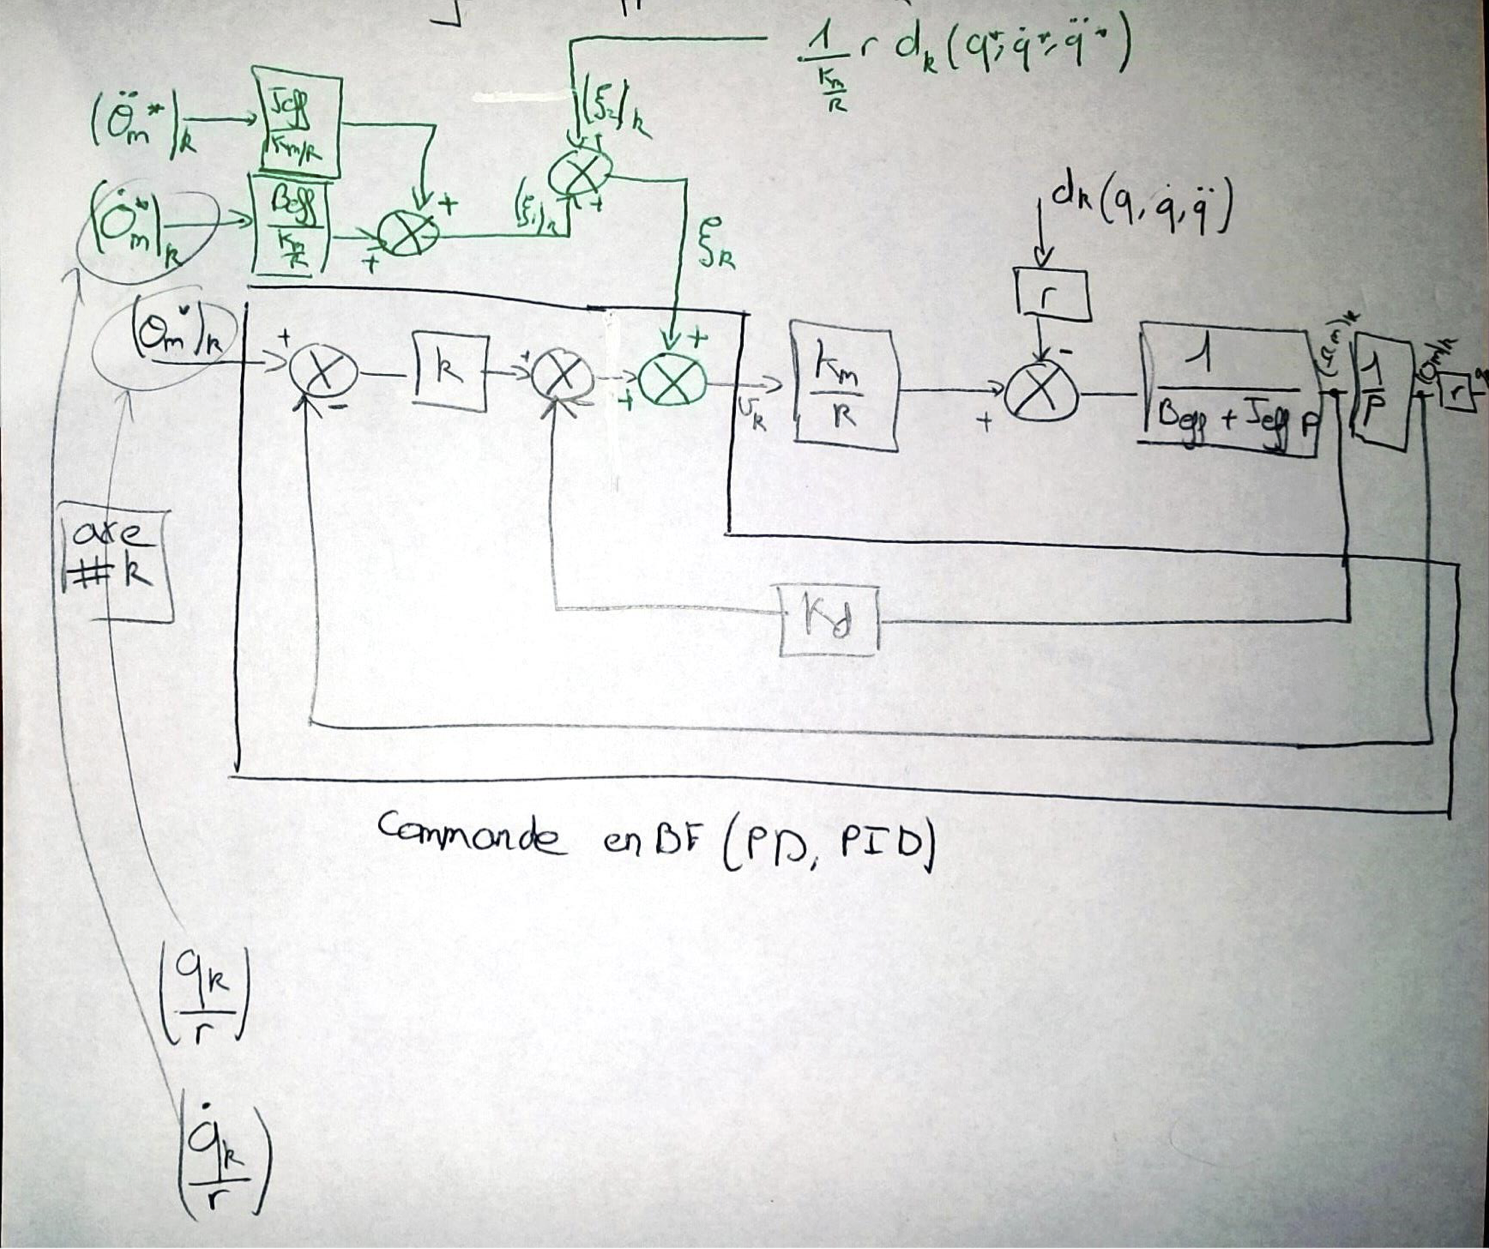 1/(Km/R) r dk(q*, q̇*, q̈*)
(ξ2)k
(θ̈m*)k
Jeff/(Km/R)
+
(θ̇m*)k
Beff/(Km/R)
+
+
(ξ1)k
+
+
ξk
dk(q, q̇, q̈)
r
(θm*)k
+
-
k
+
-
+
+
vk
Km/R
+
-
1/(Beff + Jeff P)
1/P
r
axe
#k
Kd
Commande en BF (PD, PID)
(qk/r)
(q̇k/r)